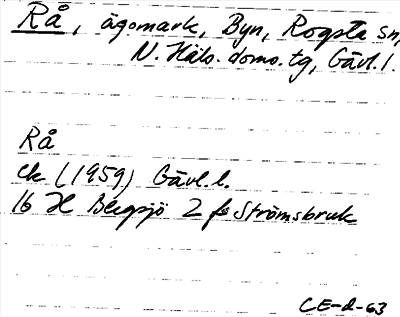 Rå, ägomark, Byn, Rogsta sn,
N. Häls. doms. tg, Gävl. l.
Rå
ek (1959) Gävl. l.
16 H Bergsjö 2 f Strömsbruk
CE-d-63